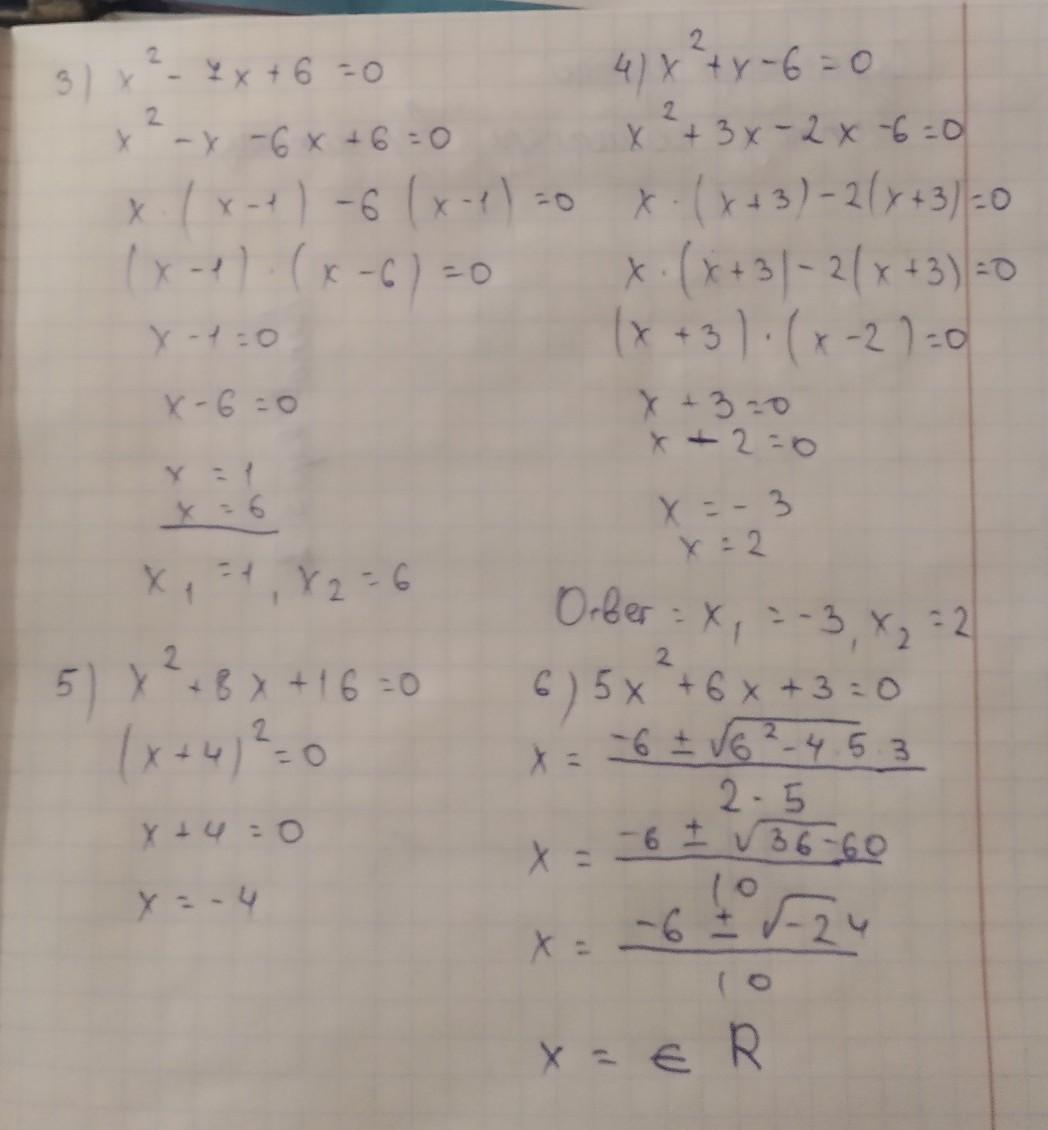 3) x² - 7x + 6 = 0
x² - x - 6x + 6 = 0
x · (x - 1) - 6 (x - 1) = 0
(x - 1) · (x - 6) = 0
x - 1 = 0
x - 6 = 0
x = 1
x = 6
x₁ = 1, x₂ = 6
4) x² + x - 6 = 0
x² + 3x - 2x - 6 = 0
x · (x + 3) - 2(x + 3) = 0
x · (x + 3) - 2(x + 3) = 0
(x + 3) · (x - 2) = 0
x + 3 = 0
x + 2 = 0
x = - 3
x = 2
Ответ = x₁ = -3, x₂ = 2
5) x² + 8x + 16 = 0
(x + 4)² = 0
x + 4 = 0
x = - 4
6) 5x² + 6x + 3 = 0
x = (-6 ± √(6² - 4 · 5 · 3)) / (2 · 5)
x = (-6 ± √(36 - 60)) / 10
x = (-6 ± √(-24)) / 10
x = ∈ R